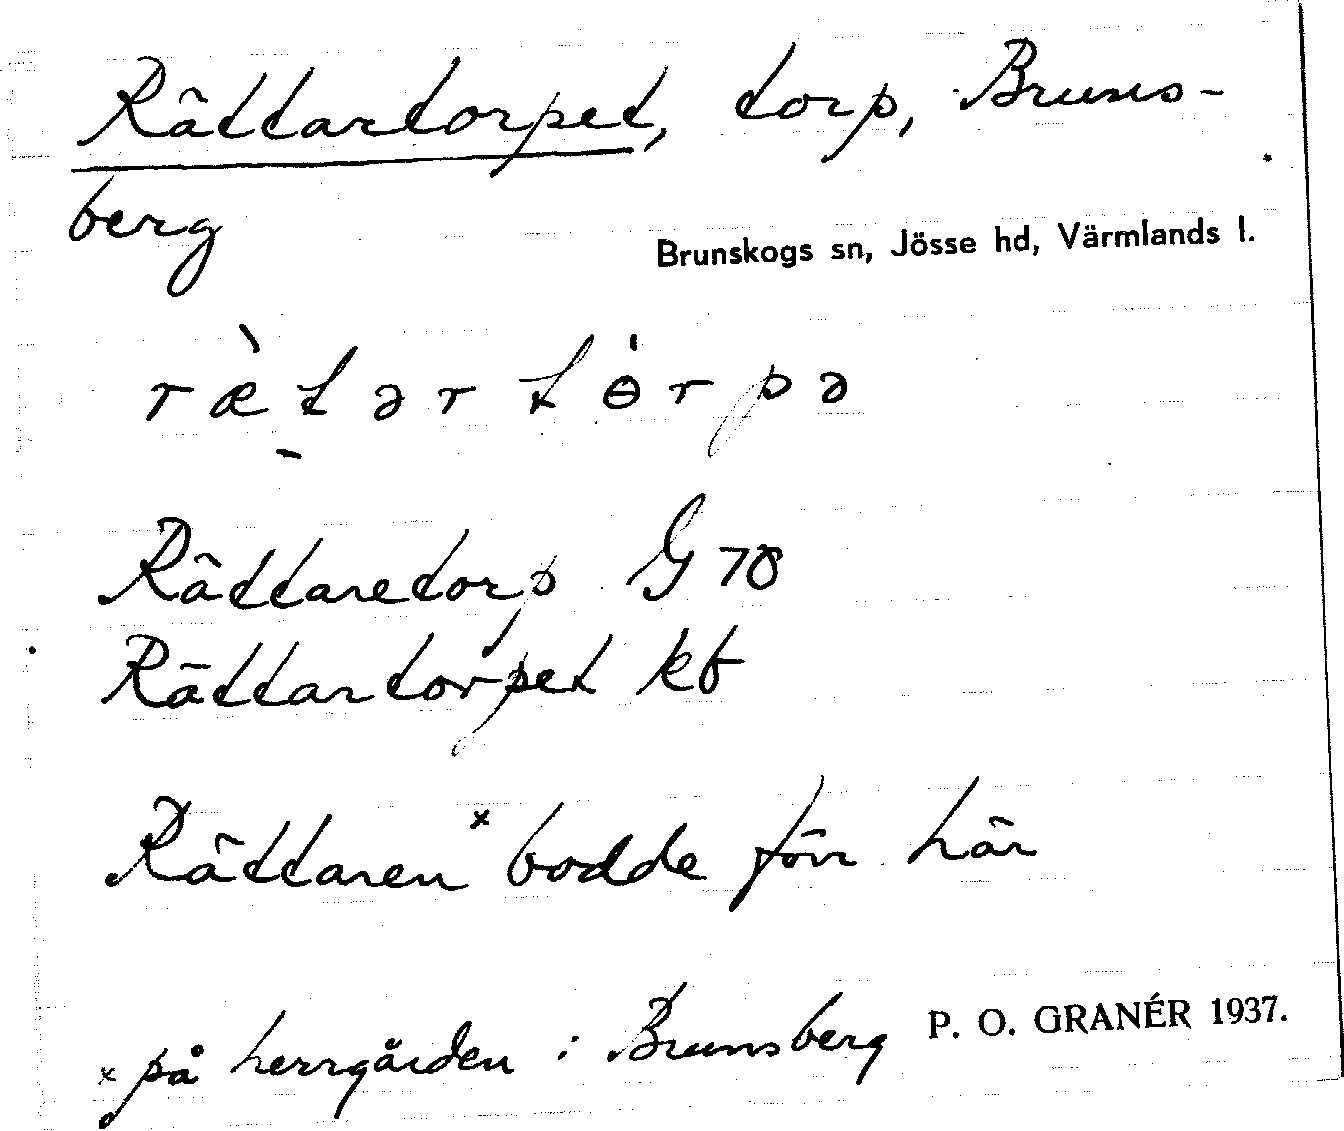 Rättartorpet, torp, Bruns-
berg
Brunskogs sn, Jösse hd, Värmlands l.
r æ̀ t̠ ə r t ɵ́ r p ə
Rättaretorp G 78
Rättartorpet kb
Rättaren x bodde förr här
x på herrgården i Brunsberg
P. O. GRANÉR 1937.